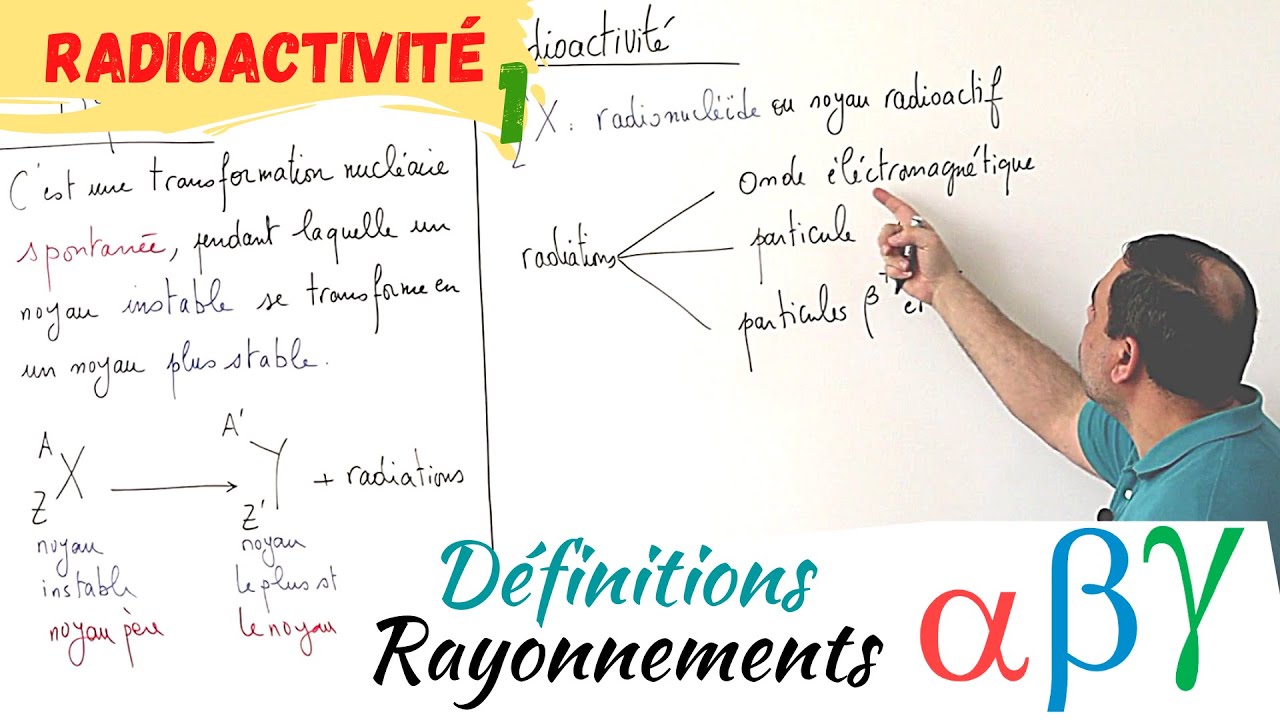 RADIOACTIVITÉ
1
dioactivité
C'est une transformation nucléaire
spontanée, pendant laquelle un
noyau instable se transforme en
un noyau plus stable.
A
X
Z
A'
Y
Z'
+ radiations
noyau
instable
noyau père
noyau
le plus st
le noyau
X : radionucléïde ou noyau radioactif
radiations
Onde éléctromagnétique
particule
particules β et
Définitions
Rayonnements
α β γ